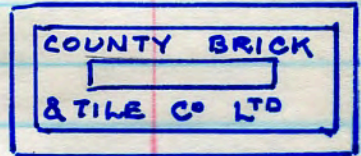 COUNTY BRICK
& TILE Cº LTD